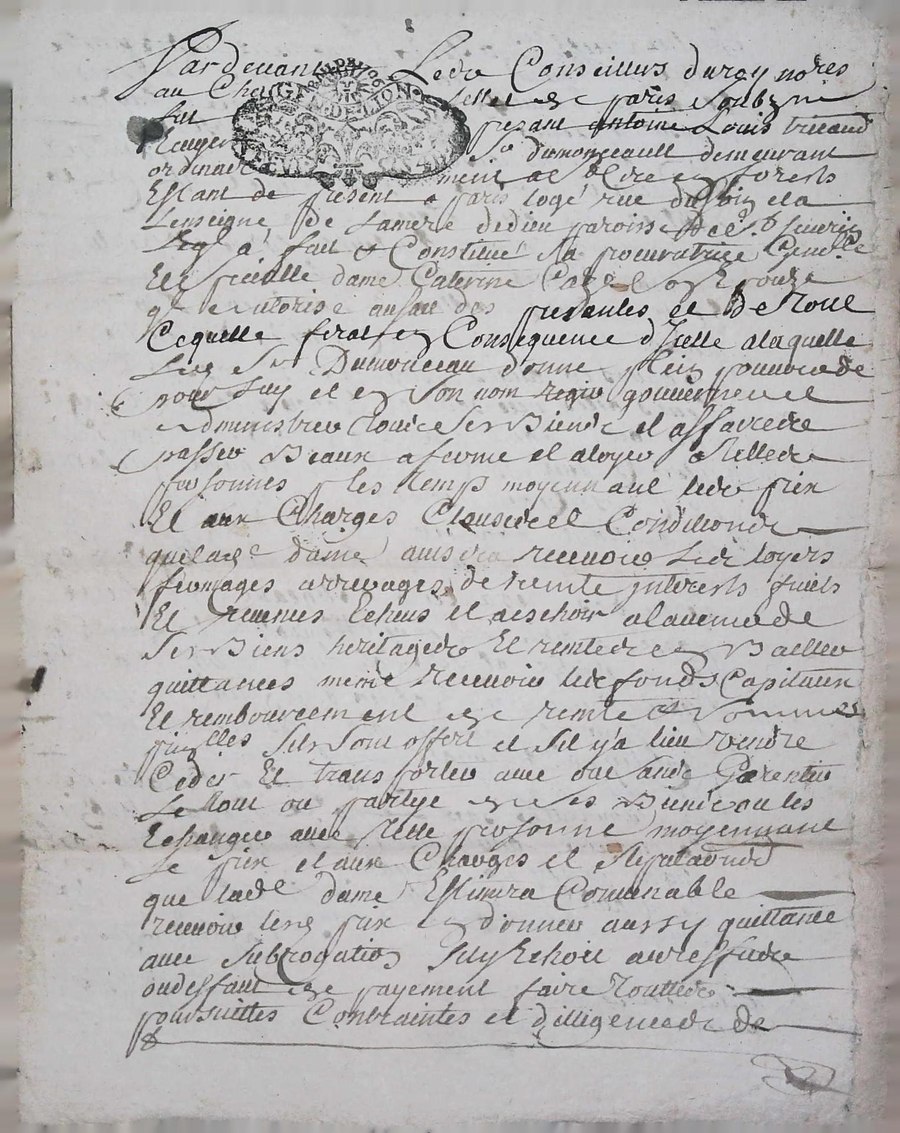 Pardevant Les Conseillers du roy no.res
au Chatellet de paris soubz.ne
fut present Antoine Louis
Ecuyer Sr dumonceault demeurant
ordinairement a en forests
Estant de present a paris logé rue a
Lenseigne de Lamere dedieu paroisse St Severin
Leql a fait et Constitué sa procuratrice Gen.le
Et specialle dame Caterine son Epouze
ql autorise au fait des presantes et de tout
Cequelle fera en Consequence d'Icelle alaquelle
Led Sr Dumonceau donne plein pouvoir de
pour luy et en son nom regir gouverner et
administrer tous ses Biens et affaires
passer Beaux a ferme et aloyer a telles
personnes pr les temps moyennant les prix
Et aux Charges Clauses et Conditions
que lad.e dame avisera recevoir les loyers
fermages arrerages de rente interests fruits
Et revenus Echeus et aeschoir alavenir de
ses Biens heritages Et rentes en Bailler
quittances meme recevoir les fonds Capitaux
Et remboursement de rente et sommes
pr.lles sils sont offert et sil y'a lieu vendre
Ceder Et transporter avec ou sans Garentie
Le tout ou partye de ses Biens ou les
Echanger avec telle personne moyennant
Le prix et aux Charges et stipulations
que lad.e dame Estimera Convenable
recevoir les prix en donner aussy quittance
avec subrogation sily Echoit au reffus
ou deffaut de payement faire touttes
poursuittes Contraintes et dilligences de